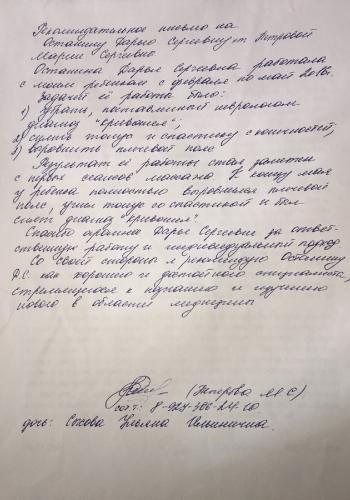 Рекомендательное письмо на
Осташину Дарью Сергеевну от Петровой
Марии Сергеевны
Осташина Дарья Сергеевна работала
с моим ребенком с февраля по май 2018г.
Задачей её работы было:
1) убрать, поставленный неврологом
диагноз "кривошея";
2) снять тонус и спастику с конечностей;
3) выровнить плечевой пояс
Результат её работы стал заметен
с первых сеансов массажа. К концу мая
у ребенка полностью выровнился плечевой
пояс, ушел тонус со спастикой и был
снят диагноз "кривошея"
Спасибо огромное Дарье Сергеевне за ответ-
ственную работу и индивидуальный подход
Со своей стороны я рекомендую Осташину
Д.С. как хорошего и
стремящуюся к познанию и изучению
нового в области медицины
(Петрова М С)
сот.:
дочь: Ульяна Ильинична.